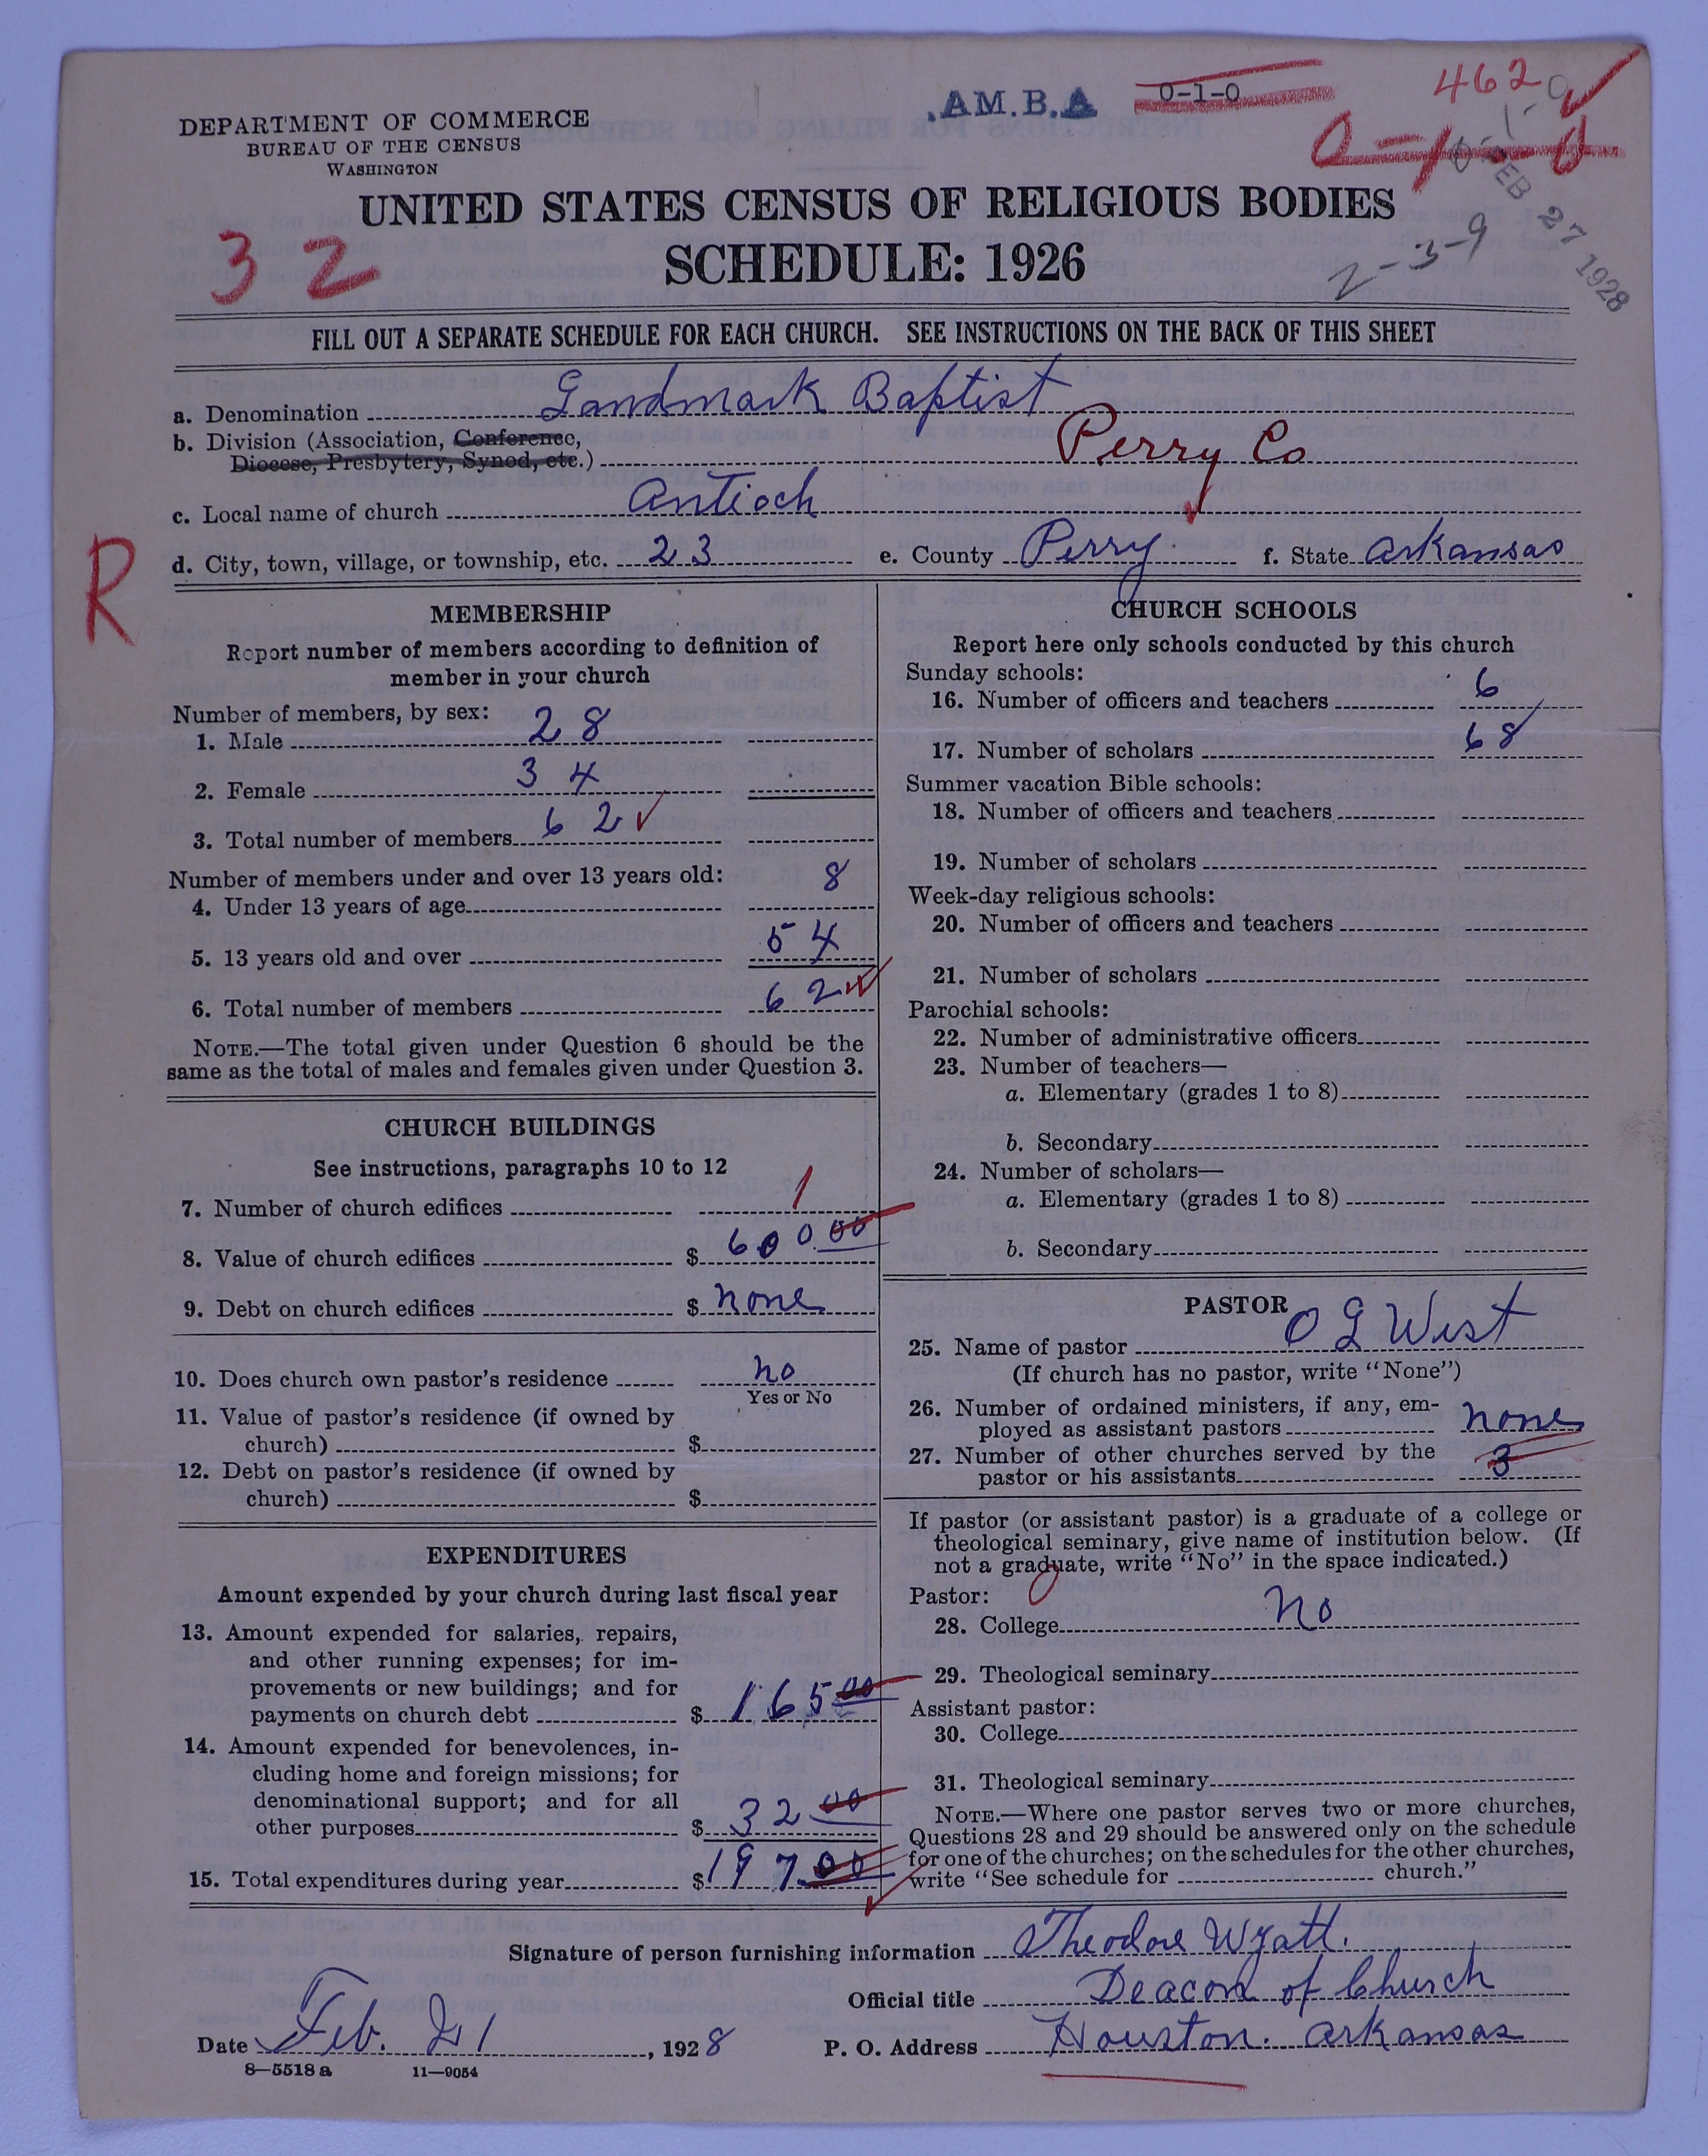 .AM.B.A 0-1-0 462
0-1-0
FEB 27 1928
2-3-9
32
DEPARTMENT OF COMMERCE
BUREAU OF THE CENSUS
WASHINGTON
UNITED STATES CENSUS OF RELIGIOUS BODIES
SCHEDULE: 1926
FILL OUT A SEPARATE SCHEDULE FOR EACH CHURCH. SEE INSTRUCTIONS ON THE BACK OF THIS SHEET
a. Denomination Landmark Baptist
b. Division (Association, Conference,
Diocese, Presbytery, Synod, etc.) Perry Co
c. Local name of church Antioch
d. City, town, village, or township, etc. 23 e. County Perry f. State Arkansas
R
MEMBERSHIP
Report number of members according to definition of
member in your church
Number of members, by sex:
1. Male 28
2. Female 34
3. Total number of members 62
Number of members under and over 13 years old:
4. Under 13 years of age 8
5. 13 years old and over 54
6. Total number of members 62
NOTE.—The total given under Question 6 should be the
same as the total of males and females given under Question 3.
CHURCH BUILDINGS
See instructions, paragraphs 10 to 12
7. Number of church edifices 1
8. Value of church edifices $ 600.00
9. Debt on church edifices $ none
10. Does church own pastor's residence no
Yes or No
11. Value of pastor's residence (if owned by
church) $
12. Debt on pastor's residence (if owned by
church) $
EXPENDITURES
Amount expended by your church during last fiscal year
13. Amount expended for salaries, repairs,
and other running expenses; for im-
provements or new buildings; and for
payments on church debt $ 165 00
14. Amount expended for benevolences, in-
cluding home and foreign missions; for
denominational support; and for all
other purposes $ 32 00
15. Total expenditures during year $ 197.00
CHURCH SCHOOLS
Report here only schools conducted by this church
Sunday schools:
16. Number of officers and teachers 6
17. Number of scholars 68
Summer vacation Bible schools:
18. Number of officers and teachers
19. Number of scholars
Week-day religious schools:
20. Number of officers and teachers
21. Number of scholars
Parochial schools:
22. Number of administrative officers
23. Number of teachers—
a. Elementary (grades 1 to 8)
b. Secondary
24. Number of scholars—
a. Elementary (grades 1 to 8)
b. Secondary
PASTOR
25. Name of pastor O G West
(If church has no pastor, write "None")
26. Number of ordained ministers, if any, em-
ployed as assistant pastors none
27. Number of other churches served by the
pastor or his assistants 3
If pastor (or assistant pastor) is a graduate of a college or
theological seminary, give name of institution below. (If
not a graduate, write "No" in the space indicated.)
Pastor: 0
28. College no
29. Theological seminary
Assistant pastor:
30. College
31. Theological seminary
NOTE.—Where one pastor serves two or more churches,
Questions 28 and 29 should be answered only on the schedule
for one of the churches; on the schedules for the other churches,
write "See schedule for church."
Signature of person furnishing information Theodore Wyatt.
Official title Deacon of Church
Date Feb. 21, 1928 P. O. Address Houston. Arkansas
8—5518 a 11—9054